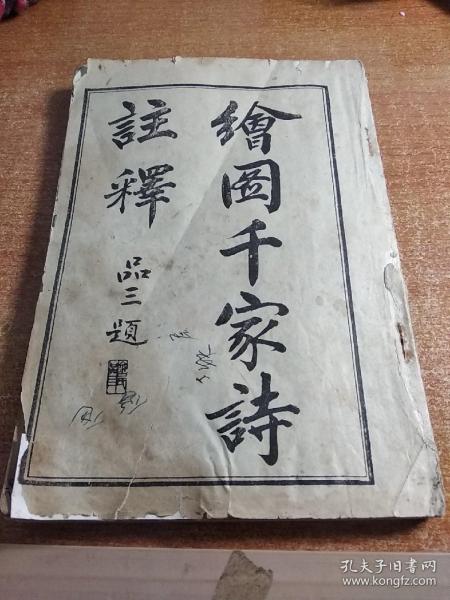 繪圖千家詩
註釋
品三題
孔夫子旧书网
www.kongfz.com